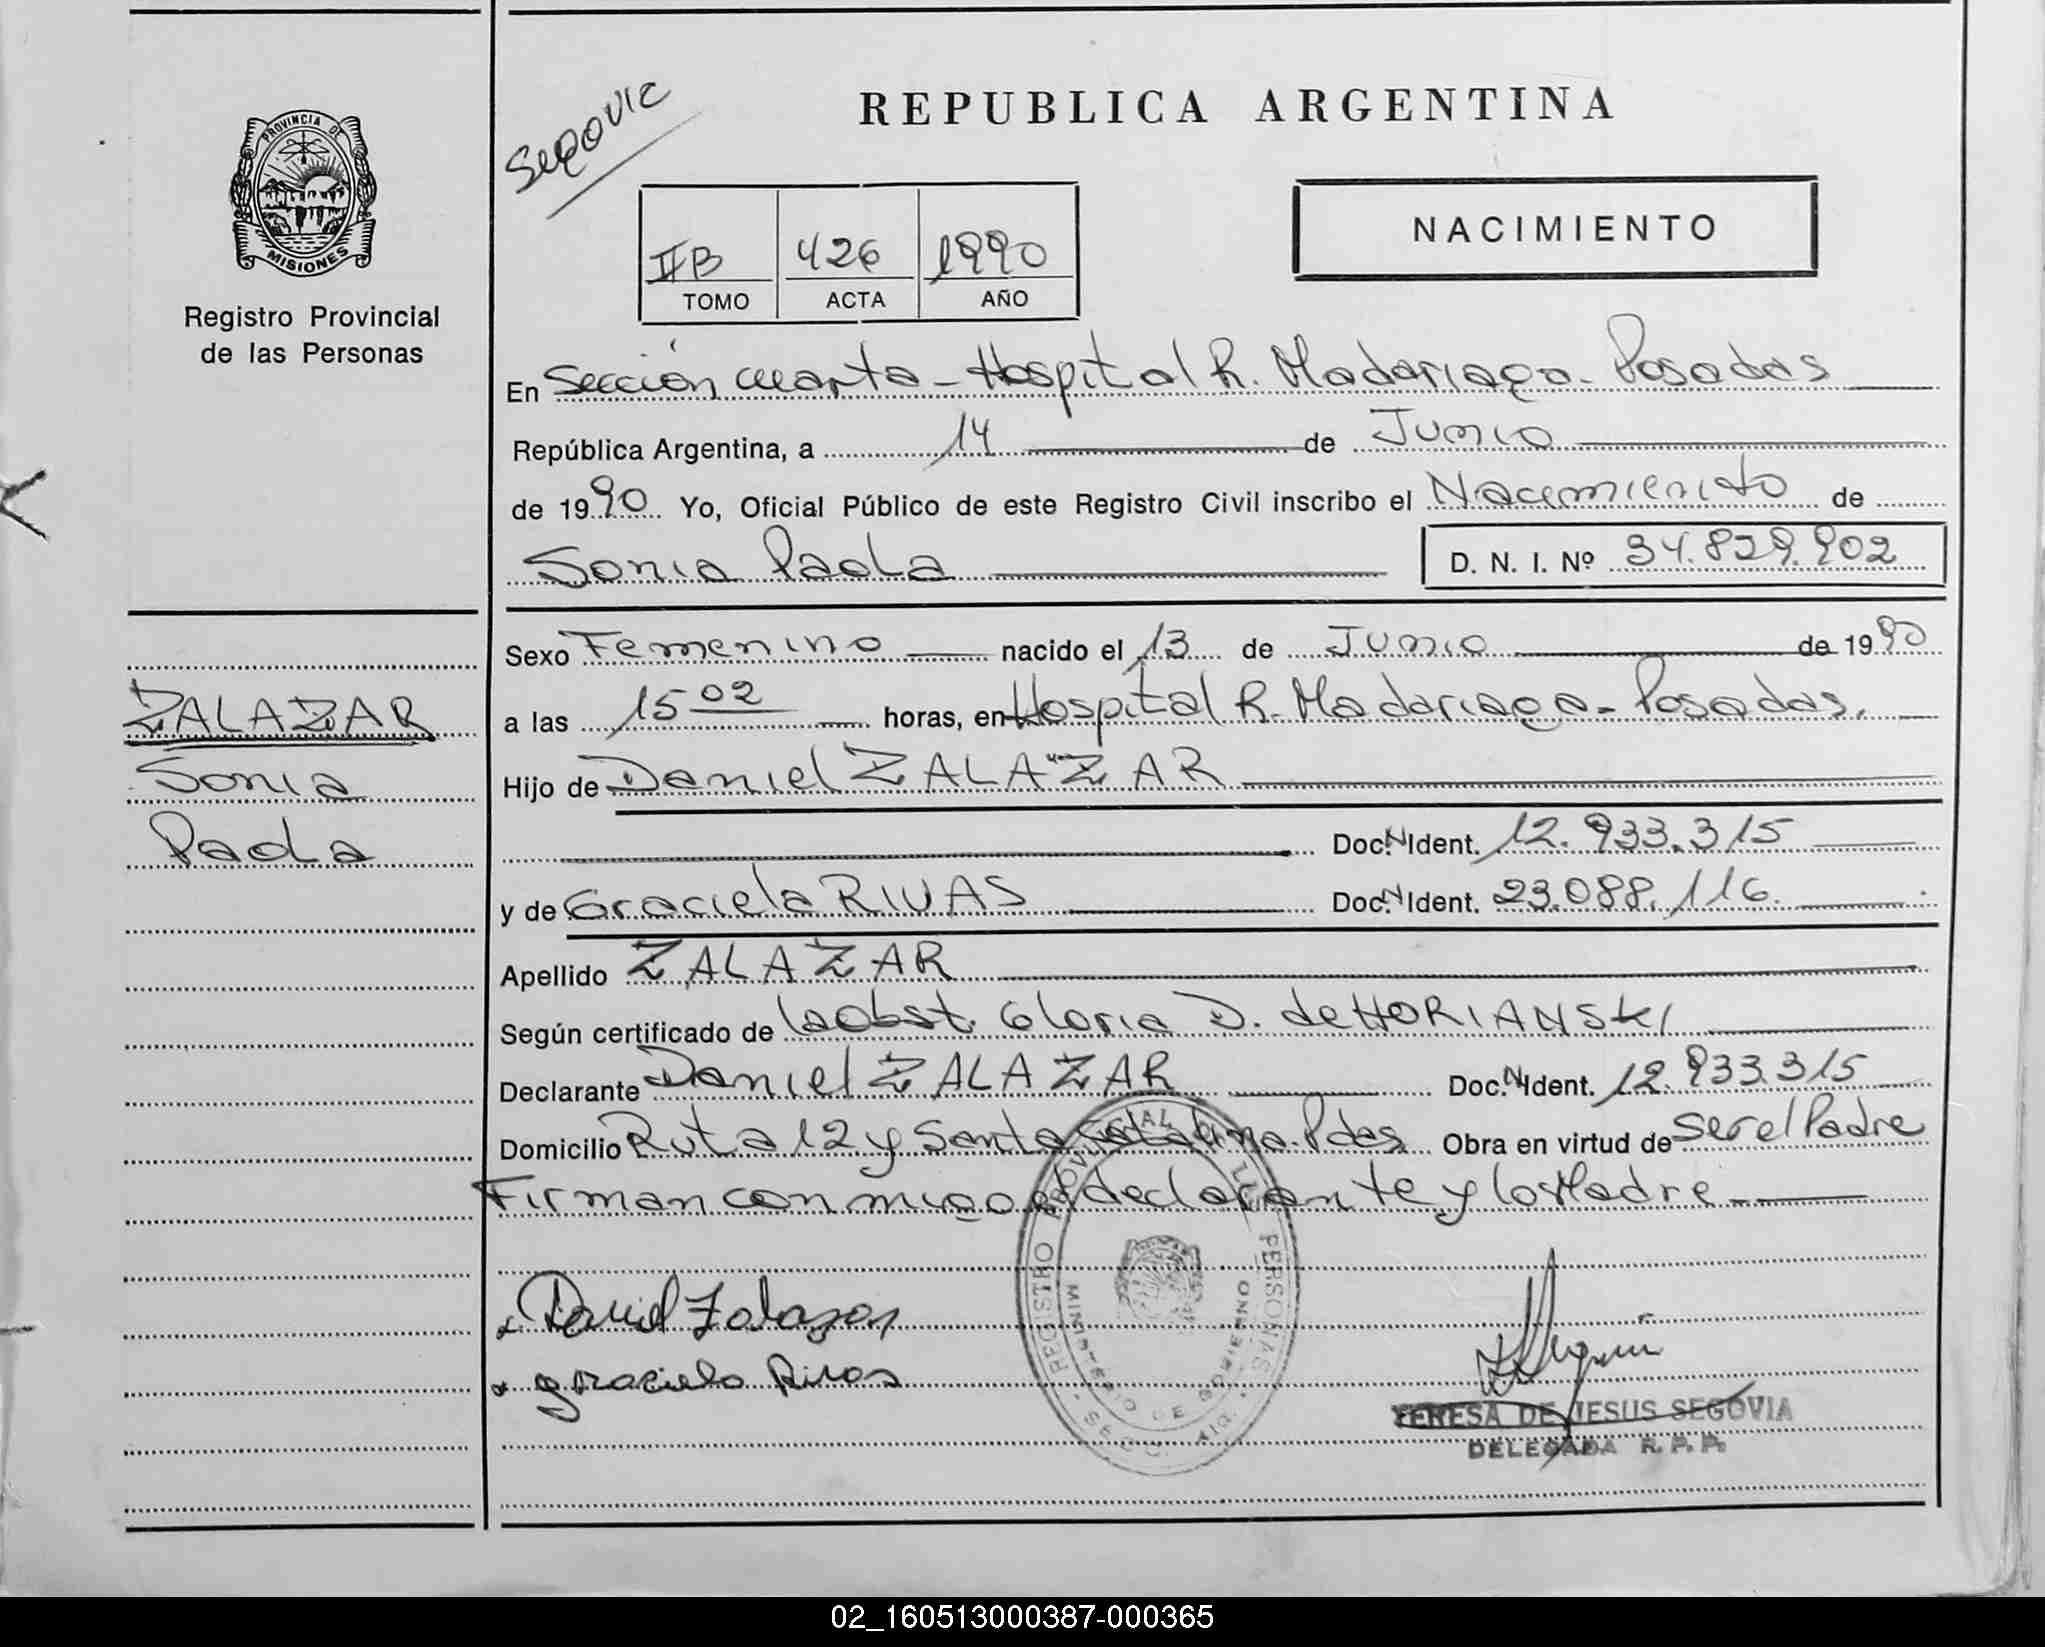 PROVINCIA DE
MISIONES
Registro Provincial
de las Personas
ZALAZAR
Sonia
Paola
Segovia
REPUBLICA ARGENTINA
NACIMIENTO
IIB 426 1990
TOMO ACTA AÑO
En Sección cuarta - Hospital R. Madariaga - Posadas
República Argentina, a 14 de Junio
de 1990 Yo, Oficial Público de este Registro Civil inscribo el Nacimiento de
Sonia Paola D. N. I. Nº 34.829.902
Sexo Femenino nacido el 13 de Junio de 1990
a las 15 02 horas, en Hospital R. Madariaga - Posadas.
Hijo de Daniel ZALAZAR
Doc. N Ident. 12.933.315
y de Graciela RIVAS Doc. N Ident. 23.088.116.
Apellido ZALAZAR
Según certificado de la Obst. Gloria D. de HORIANSKI
Declarante Daniel ZALAZAR Doc. N Ident. 12.933.315
Domicilio Ruta 12 y Santa Catalina - Pdas. Obra en virtud de ser el Padre
Firman conmigo el declarante y la Madre
Daniel Zalazar
Graciela Rivas
REGISTRO PROVINCIAL DE LAS PERSONAS
MINISTERIO DE GOBIERNO
TERESA DE JESUS SEGOVIA
DELEGADA R. P. P.
02_160513000387-000365